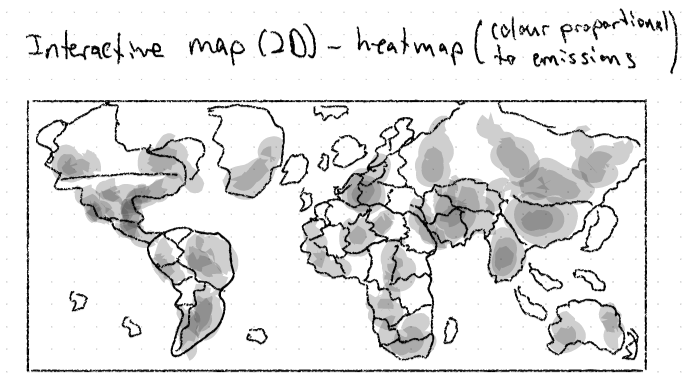 Interactive map (2D) - heatmap (colour proportional
to emissions)